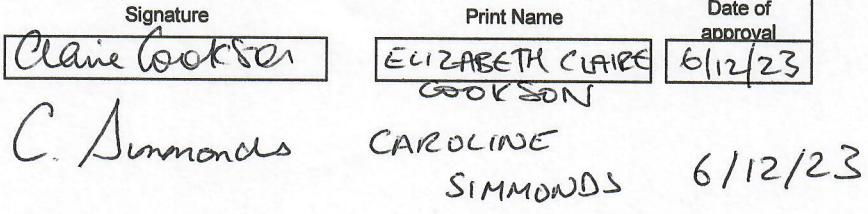 Signature Print Name Date of
approval
Claire Cookson ELIZABETH CLAIRE 6/12/23
COOKSON
C. Simmonds CAROLINE
SIMMONDS 6/12/23